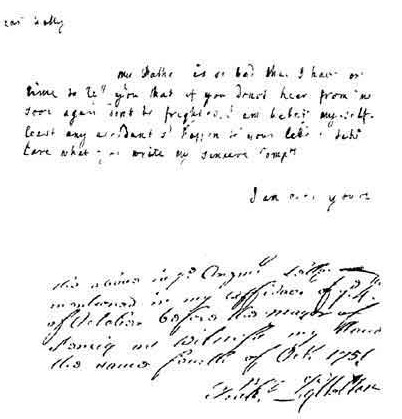 my Fathe is so bad that I have
time to tell you that if you donot hear from me
soon again dont be frighted I am better myself
least any accident sh Happen to your letter
Care what you write my sincere Compts
I am ever yours
the above in ye Origml Letter
mentioned in my affidavit of ye 4th
of October before the mayor of
as witness my Hand
the same fourth of Octr 1751